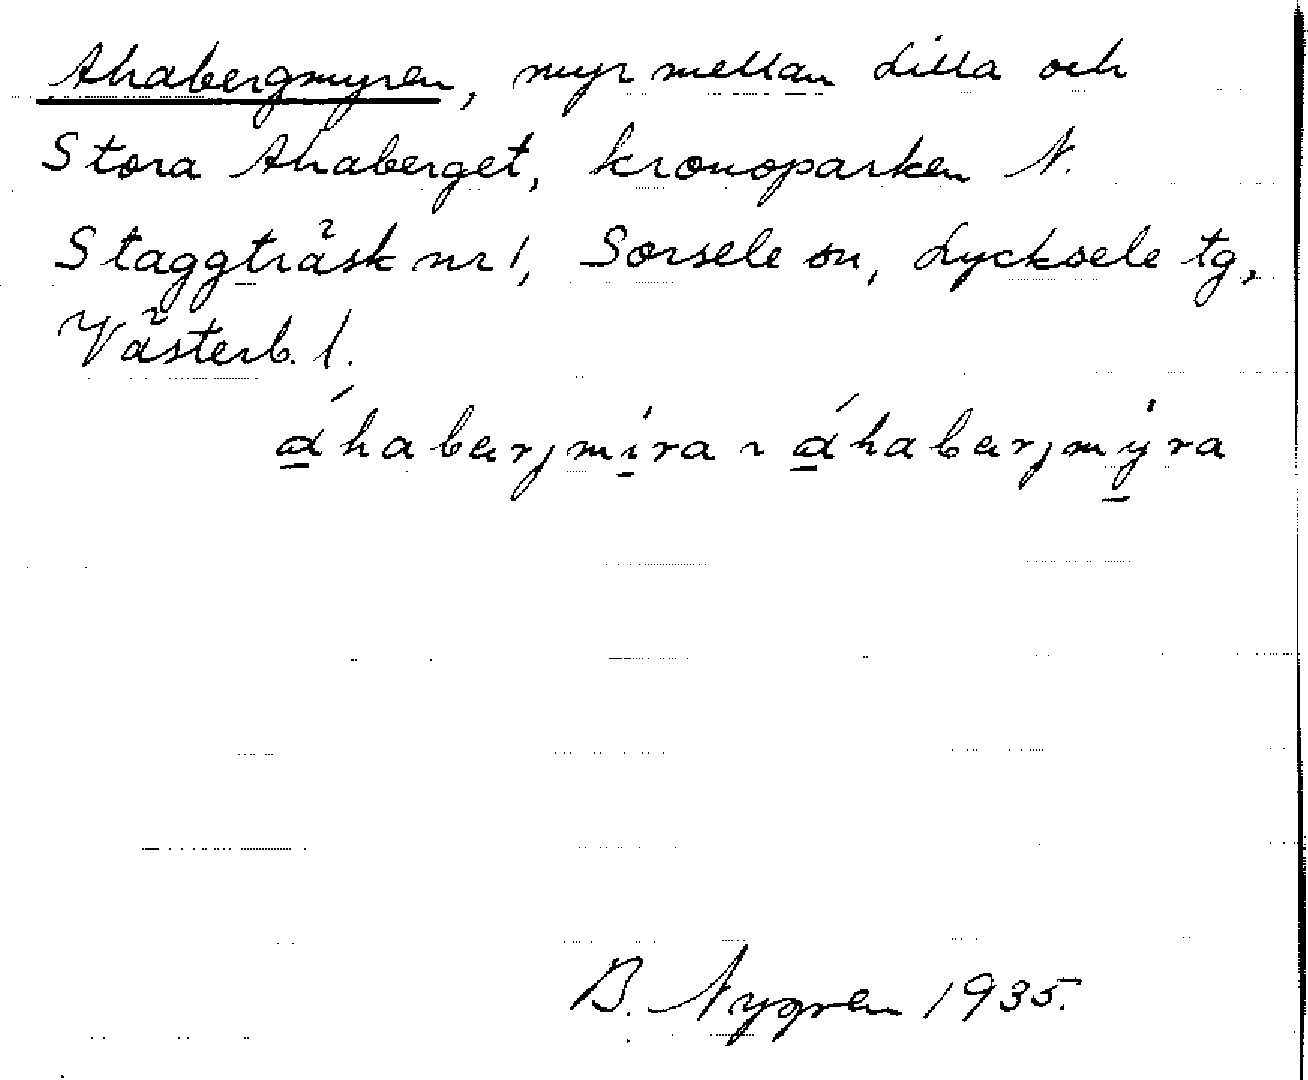 Ahabergmyren, myr mellan Lilla och
Stora Ahaberget, kronoparken N.
Staggträsk nr 1, Sorsele sn, Lycksele tg,
Västerb. l.
á̲haberjmi̲ra ~ á̲haberjmy̲ra
B. Nygren 1935.